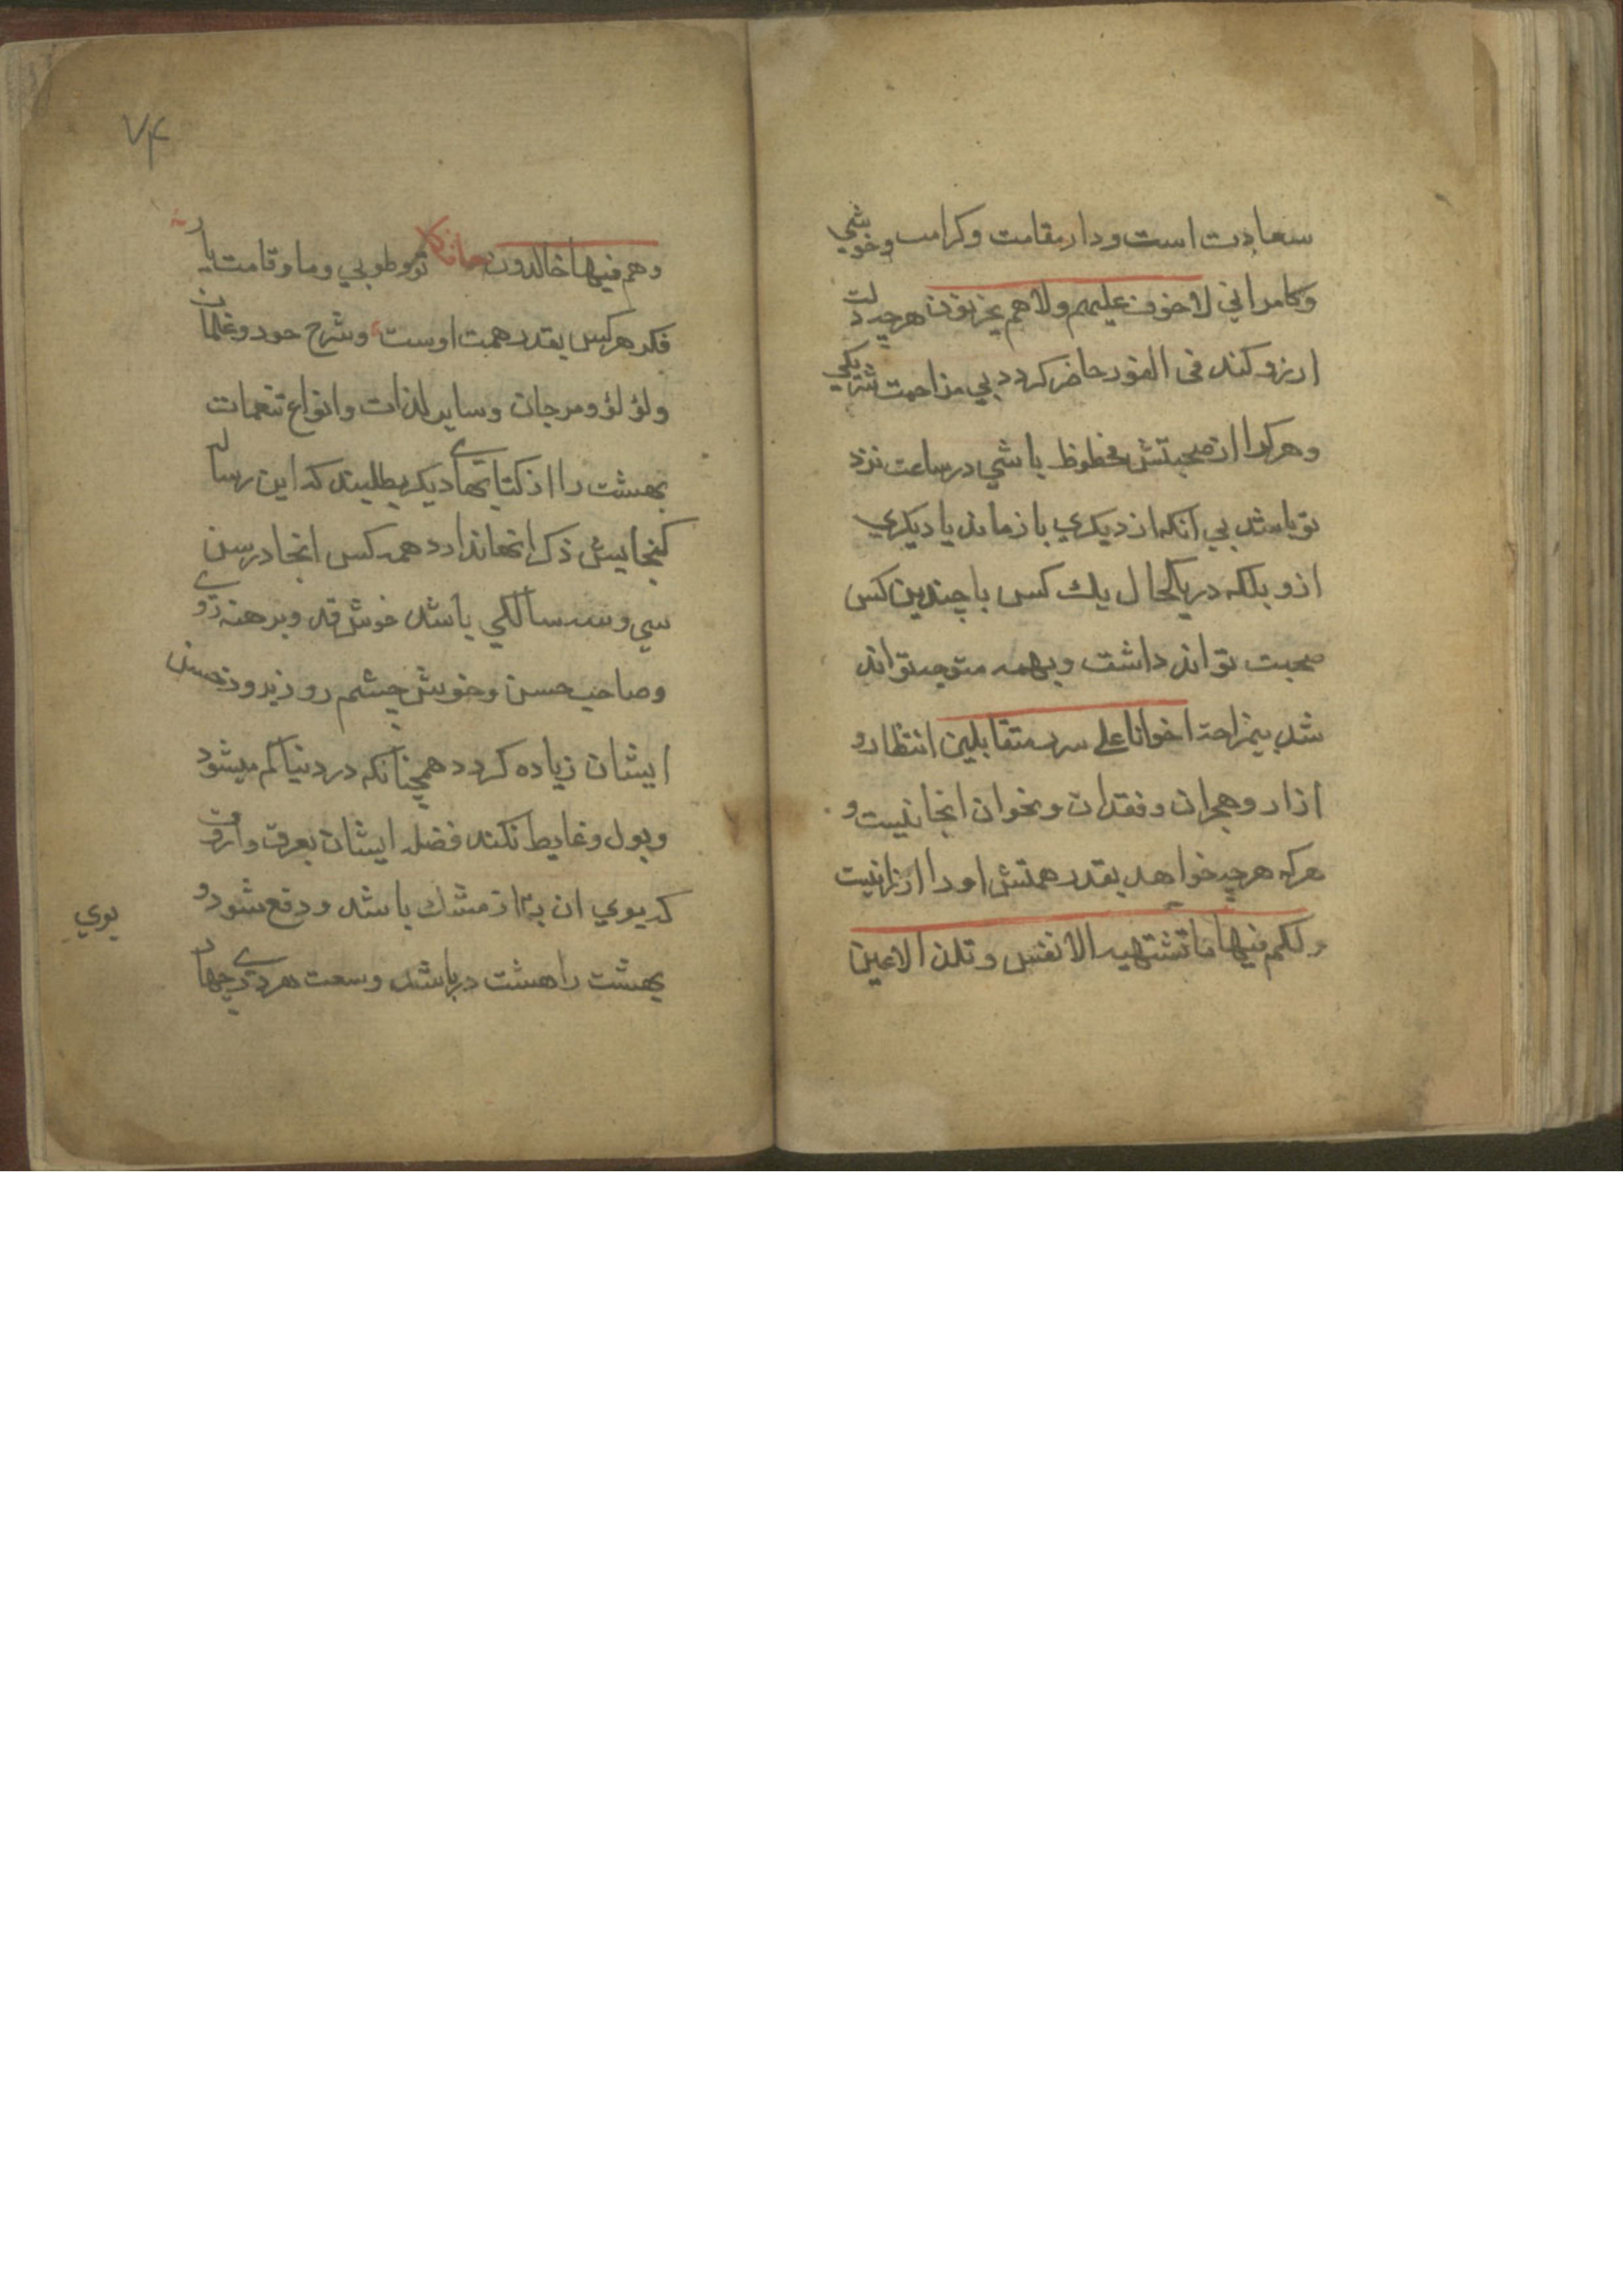 سعادت است و دار مقامت و کرامت و خوشي
و کامراني لا خوف عليهم ولا هم يحزنون هرچه دلت
ارزو کند في الفور حاضر کردد بي مزاحمت شريکي
و هر کرا از صحبتش محظوظ باشي در ساعت نزد
تو باشد بي انکه از ديکري باز ماند يا ديکري
ازو بلکه در يکحال يك کس با چندين کس
صحبت تواند داشت و بهمه متوجه تواند
شد بيمزاحمة اخوانا علي سرر متقابلين انتظار و
ازار و هجران و فقدان و نخوان انجا نيست و
هرکه هرچه خواهد بقدر همتش او را ارزانيست
ولکم فيها ما تشتهيه الانفس و تلذ الاعين
۷۴
وهم فيها خالدون تو و طوبي و ما و قامت يار
فکر هرکس بقدر همت اوست و شرح حور و غلمان
و لؤلؤ و مرجان و ساير لذات و انواع تنعمات
بهشت را از کتابهاي ديکر بطلبند که اين رساله
کنجايش ذکر انها ندارد همه کس انجا در سن
سي و سه سالکي باشد خوش قد و برهنه روي
و صاحب حسن و خوش چشم روز بروز حسن
ايشان زياده کردد همچنانکه در دنيا کم ميشود
و بول و غايط نکنند فضله ايشان بعرق و اروق
که بوي ان به از مشك باشد و دفع شود و
بهشت را هشت در باشد و سعت هر دري چهار
بوي